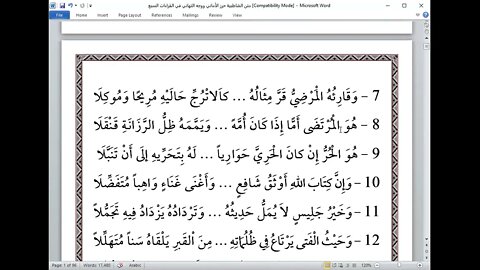 متن الشاطبية حرز الأماني ووجه التهاني في القراءات السبع [Compatibility Mode] - Microsoft Word
File Home Insert Page Layout References Mailings Review View
7 - وَقَارِئُهُ الْمَرْضِيُّ قَرَّ مِثَالُهُ ... كَالاتْرُجِّ حَالَيْهِ مُرِيحًا وَمُوكِلَا
8 - هُوَ الْمُرْتَضَى أَمًّا إِذَا كَانَ أُمَّهً ... وَيَمَّمَهُ ظِلُّ الرَّزَانَةِ قَنْقَلَا
9 - هُوَ الْحُرُّ إِنْ كانَ الْحَرِيَّ حَوَارِياً ... لَهُ بِتَحَرِّيهِ إلَى أَنْ تَنَبَّلَا
10 - وَإِنَّ كِتَابَ اللهِ أَوْثَقُ شَافِعٍ ... وَأَغْنَى غَنَاءٍ وَاهِباً مُتَفَضِّلَا
11 - وَخَيْرُ جَلِيسٍ لاَ يُمَلُّ حَدِيثُهُ ... وَتَرْدَادُهُ يَزْدَادُ فِيهِ تَجَمُّلاً
12 - وَحَيْثُ الْفَتى يَرْتَاعُ فيِ ظُلُمَاتِهِ ... مِنَ اْلقَبرِ يَلْقَاهُ سَناً مُتَهَلِّلاً
Page: 1 of 96 Words: 17,485 Arabic 120%